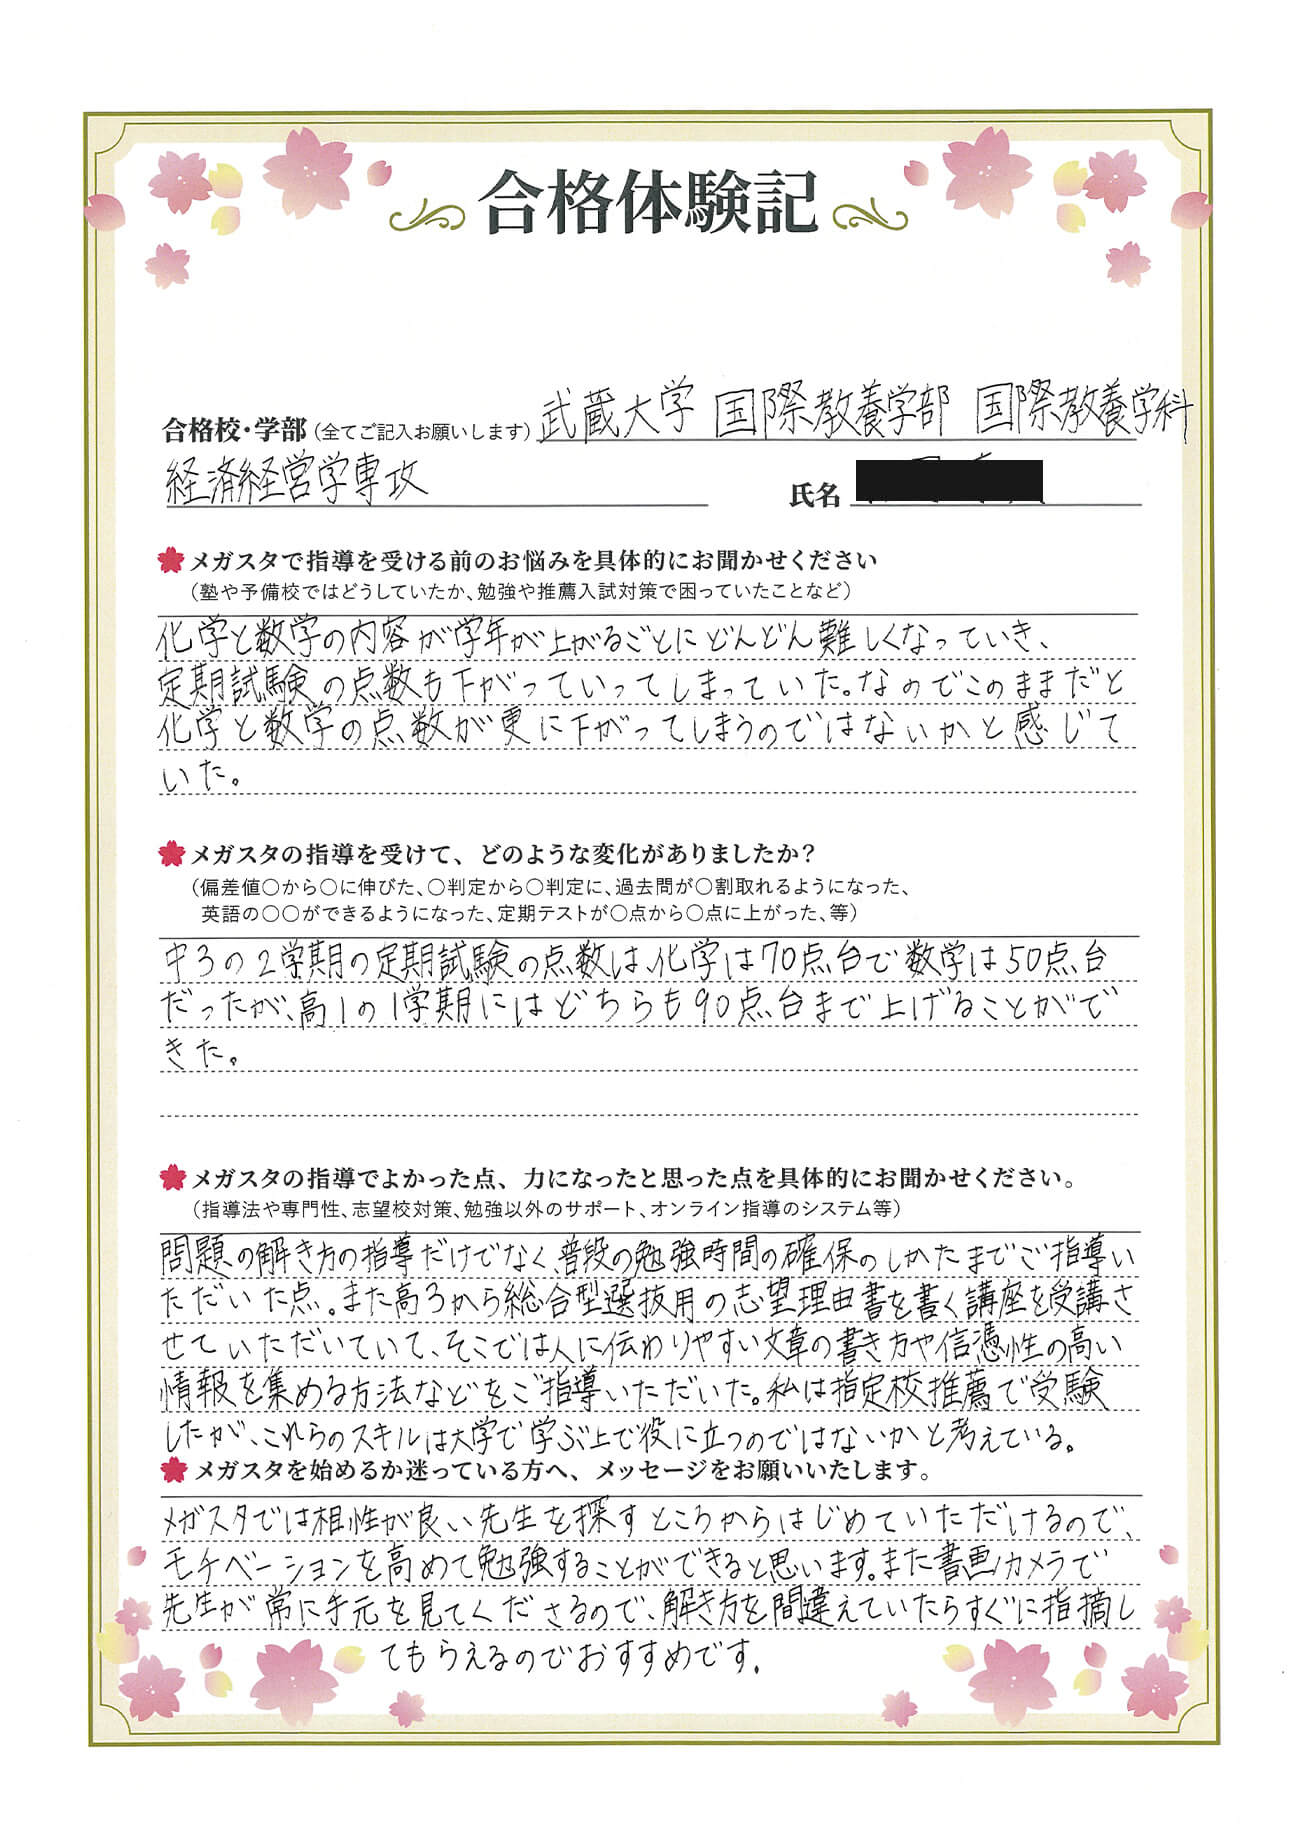 合格体験記
合格校・学部(全てご記入お願いします) 武蔵大学 国際教養学部 国際教養学科
経済経営学専攻 氏名
メガスタで指導を受ける前のお悩みを具体的にお聞かせください
(塾や予備校ではどうしていたか、勉強や推薦入試対策で困っていたことなど)
化学と数学の内容が学年が上がるごとにどんどん難しくなっていき、
定期試験の点数も下がっていってしまっていた。なのでこのままだと
化学と数学の点数が更に下がってしまうのではないかと感じて
いた。
メガスタの指導を受けて、どのような変化がありましたか?
(偏差値○から○に伸びた、○判定から○判定に、過去問が○割取れるようになった、
英語の○○ができるようになった、定期テストが○点から○点に上がった、等)
中3の2学期の定期試験の点数は、化学は70点台で数学は50点台
だったが、高1の1学期にはどちらも90点台まで上げることがで
きた。
メガスタの指導でよかった点、力になったと思った点を具体的にお聞かせください。
(指導法や専門性、志望校対策、勉強以外のサポート、オンライン指導のシステム等)
問題の解き方の指導だけでなく、普段の勉強時間の確保のしかたまでご指導い
ただいた点。また高3から総合型選抜用の志望理由書を書く講座を受講さ
せていただいていて、そこでは人に伝わりやすい文章の書き方や信憑性の高い
情報を集める方法などをご指導いただいた。私は指定校推薦で受験
したが、これらのスキルは大学で学ぶ上で役に立つのではないかと考えている。
メガスタを始めるか迷っている方へ、メッセージをお願いいたします。
メガスタでは相性が良い先生を探すところからはじめていただけるので、
モチベーションを高めて勉強することができると思います。また書画カメラで
先生が常に手元を見てくださるので、解き方を間違えていたらすぐに指摘し
てもらえるのでおすすめです.